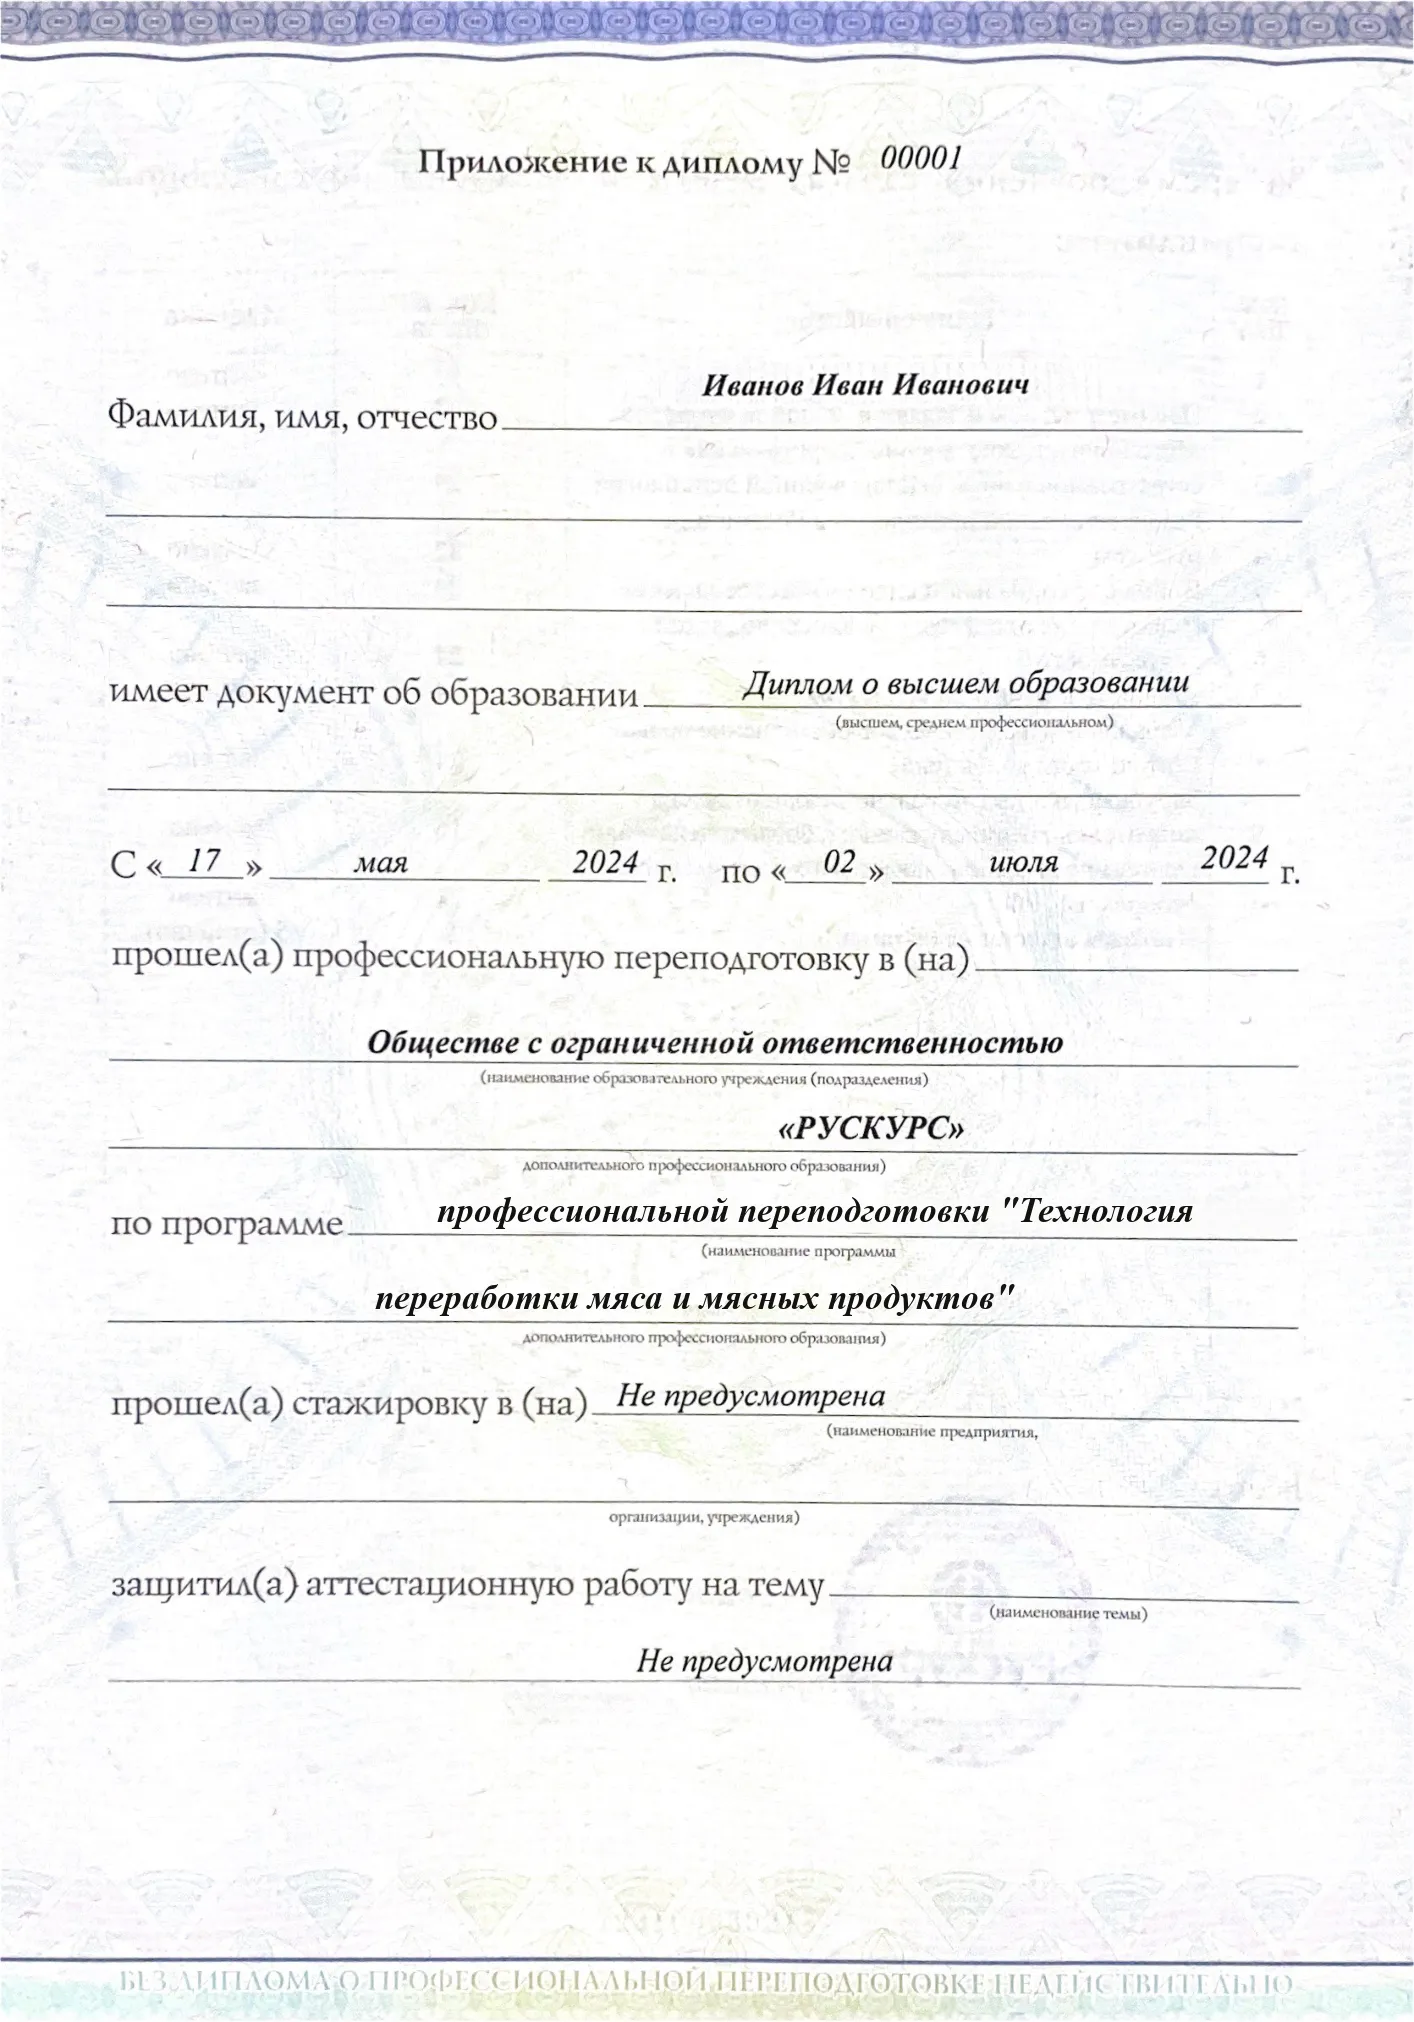 Приложение к диплому № 00001
Иванов Иван Иванович
Фамилия, имя, отчество
имеет документ об образовании Диплом о высшем образовании
(высшем, среднем профессиональном)
С « 17 » мая 2024 г. по « 02 » июля 2024 г.
прошел(а) профессиональную переподготовку в (на)
Обществе с ограниченной ответственностью
(наименование образовательного учреждения (подразделения)
«РУСКУРС»
дополнительного профессионального образования)
по программе профессиональной переподготовки "Технология
(наименование программы
переработки мяса и мясных продуктов"
дополнительного профессионального образования)
прошел(а) стажировку в (на) Не предусмотрена
(наименование предприятия,
организации, учреждения)
защитил(а) аттестационную работу на тему
(наименование темы)
Не предусмотрена
БЕЗ ДИПЛОМА О ПРОФЕССИОНАЛЬНОЙ ПЕРЕПОДГОТОВКЕ НЕДЕЙСТВИТЕЛЬНО